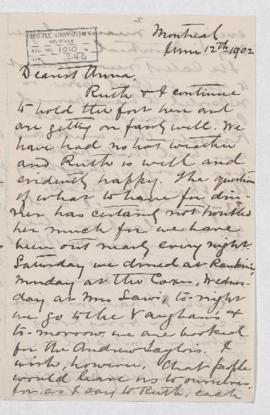 McGILL UNIVERSITY
ARCHIVES
ACC. NO. 1010
REF.
Montreal
June 12th 1902
Dearest Anna,
Ruth & I continue
to hold the fort here and
are getting on fairly well. We
have had no hot weather
and Ruth is well and
evidently happy. The question
of what to have for din-
ner has certainly not troubled
her much for we have
been out nearly every night.
Saturday we dined at Rankins,
Monday at the Coxes, Wednes-
day at Mrs Laws, to-night
we go to the Vaughans &
to-morrow we are booked
for the Andrew Taylors. I
wish, however, that people
would leave us to ourselves
for, as I say to Ruth, each